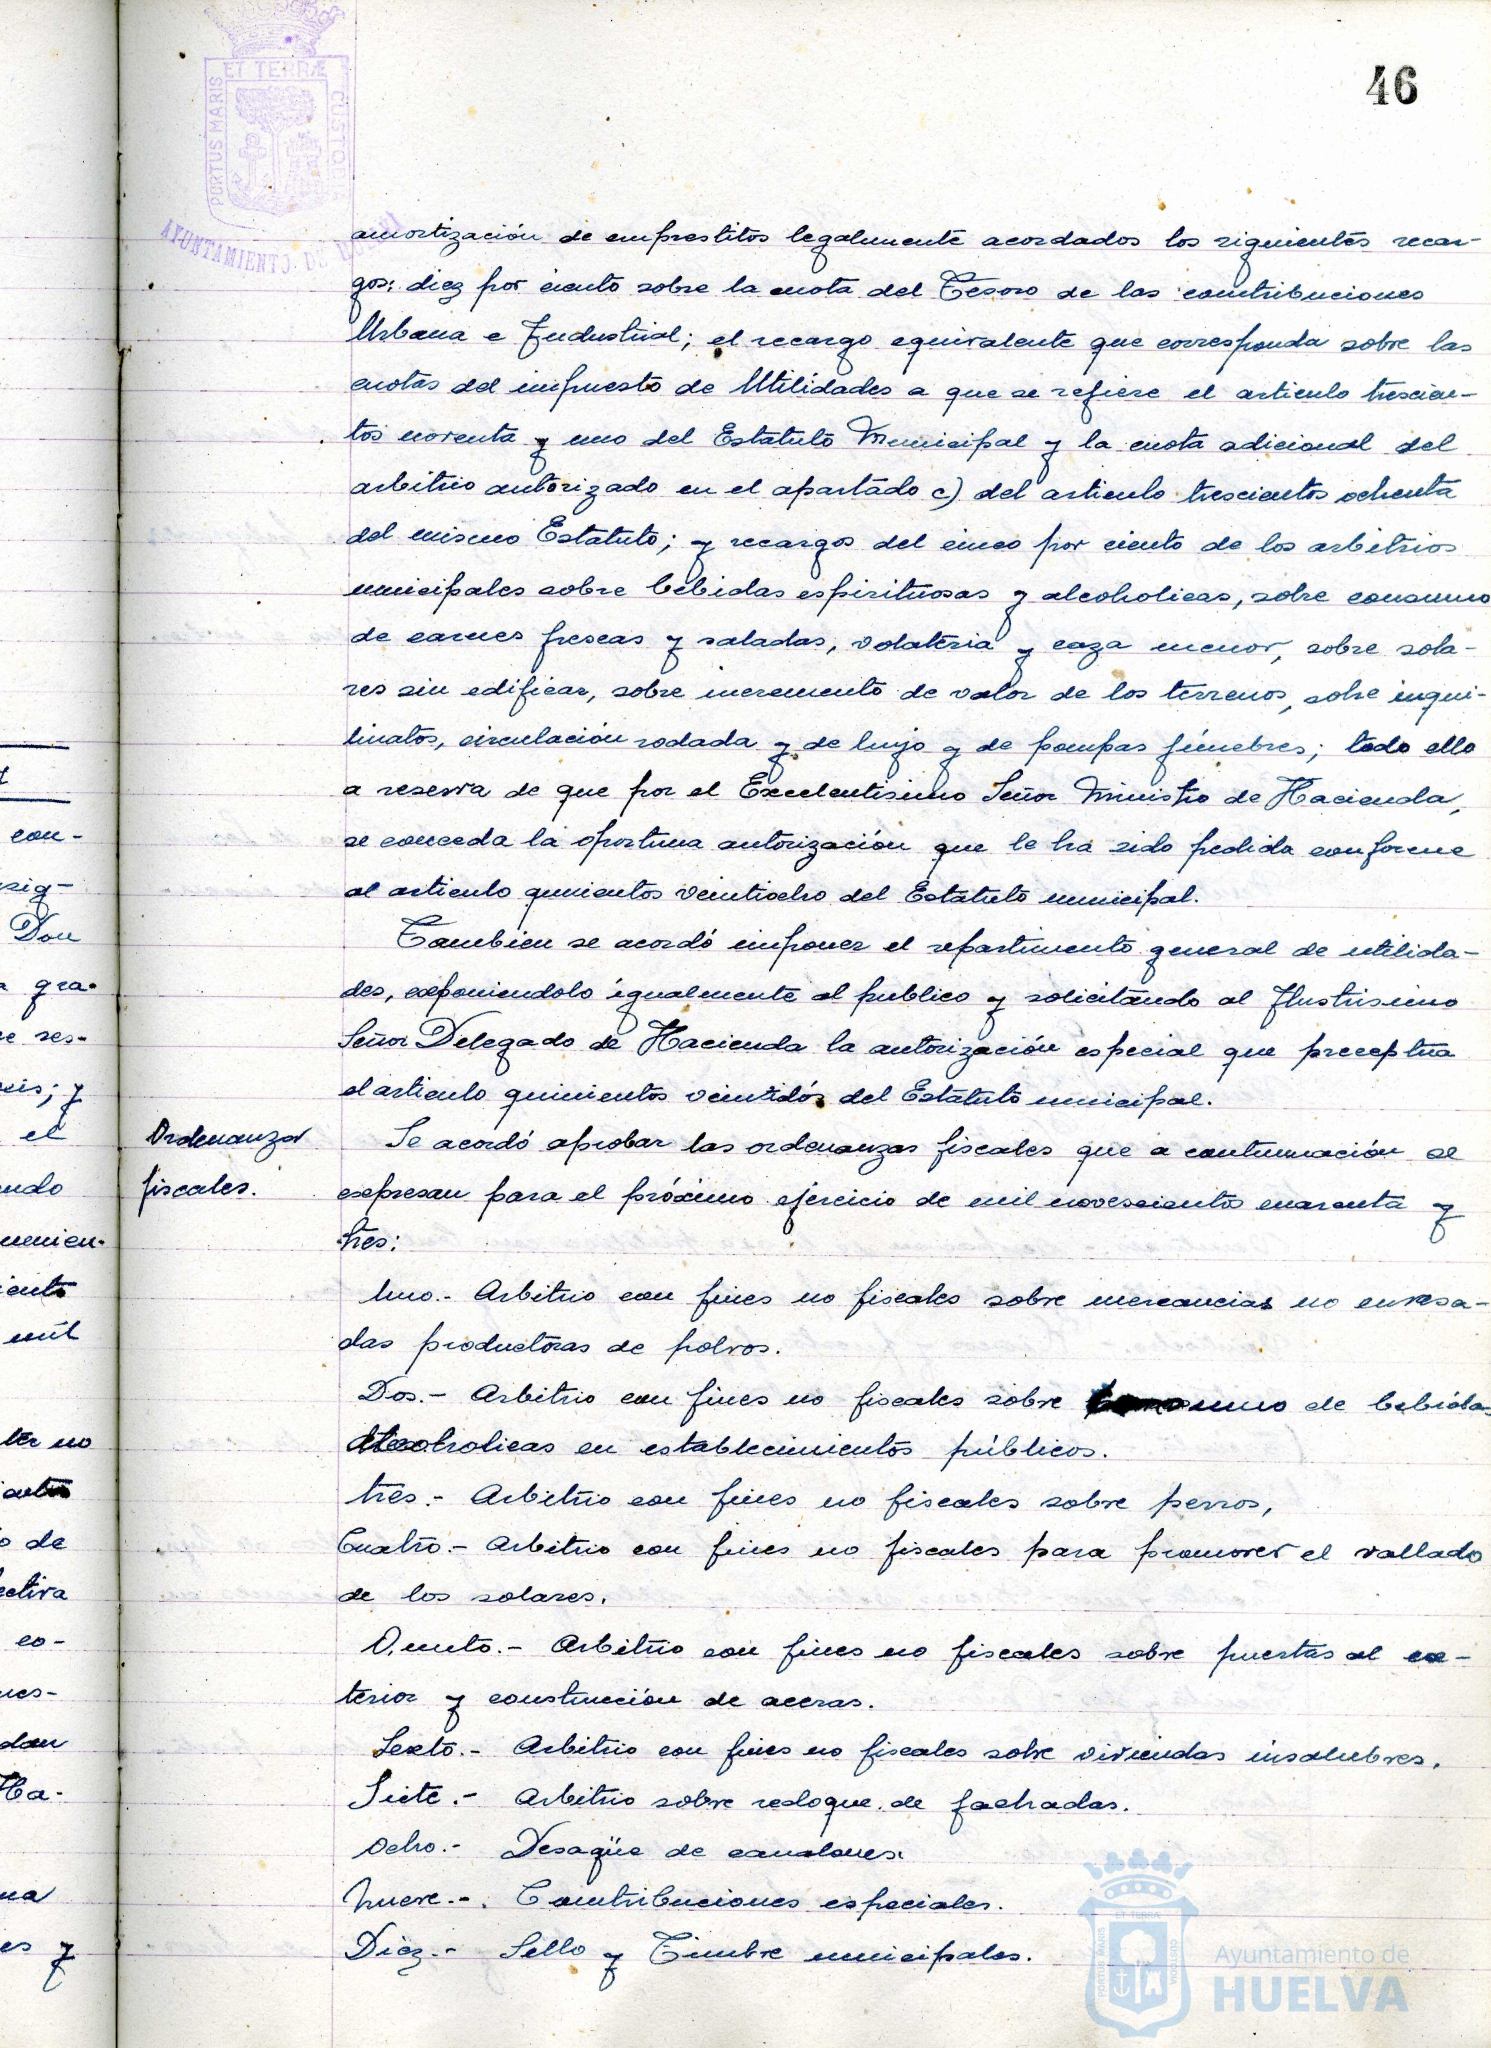 46
PORTUS MARIS ET TERRÆ CUSTO
AYUNTAMIENTO DE
amortización de emprestitos legalmente acordados los siguientes recar-
gos: diez por ciento sobre la cuota del Tesoro de las contribuciones
Urbana e Industrial; el recargo equivalente que corresponda sobre las
cuotas del impuesto de Utilidades a que se refiere el articulo trescien-
tos noventa y uno del Estatuto Municipal y la cuota adicional del
arbitrio autorizado en el apartado c) del articulo trescientos ochenta
del mismo Estatuto; y recargos del cinco por ciento de los arbitrios
municipales sobre bebidas espirituosas y alcoholicas, sobre consumo
de carnes frescas y saladas, volateria y caza menor, sobre sola-
res sin edificar, sobre incremento de valor de los terrenos, sobre inqui-
linatos, circulación rodada y de lujo y de pompas fúnebres; todo ello
a reserva de que por el Excelentisimo Señor Ministro de Hacienda,
se conceda la oportuna autorización que le ha sido pedida conforme
al articulo quinientos veintiocho del Estatuto municipal.
Tambien se acordó imponer el repartimento general de utilida-
des, exponiendolo igualmente al publico y solicitando al Ilustrisimo
Señor Delegado de Hacienda la autorización especial que preceptua
el articulo quinientos veintidós del Estatuto municipal.
Ordenanzas
fiscales.
Se acordó aprobar las ordenanzas fiscales que a continuación se
expresan para el próximo ejercicio de mil novescientos cuarenta y
tres:
Uno.- Arbitrio con fines no fiscales sobre mercancias no envasa-
das productoras de polvos.
Dos.- Arbitrio con fines no fiscales sobre consumo de bebidas
alcoholicas en establecimientos públicos.
tres.- Arbitrio con fines no fiscales sobre perros,
Cuatro.- Arbitrio con fines no fiscales para promover el vallado
de los solares.
Quinto.- Arbitrio con fines no fiscales sobre puertas al ex-
terior y construcción de aceras.
Sexto.- Arbitrio con fines no fiscales sobre viviendas insalubres.
Siete.- Arbitrio sobre redoque de fachadas.
Ocho.- Desagüe de canalones.
Nueve.- Contribuciones especiales.
Diez.- Sello y Timbre municipales.
con-
sig-
Don
gra-
res-
y
el
mil
no
de
co-
y
Ayuntamiento de
HUELVA